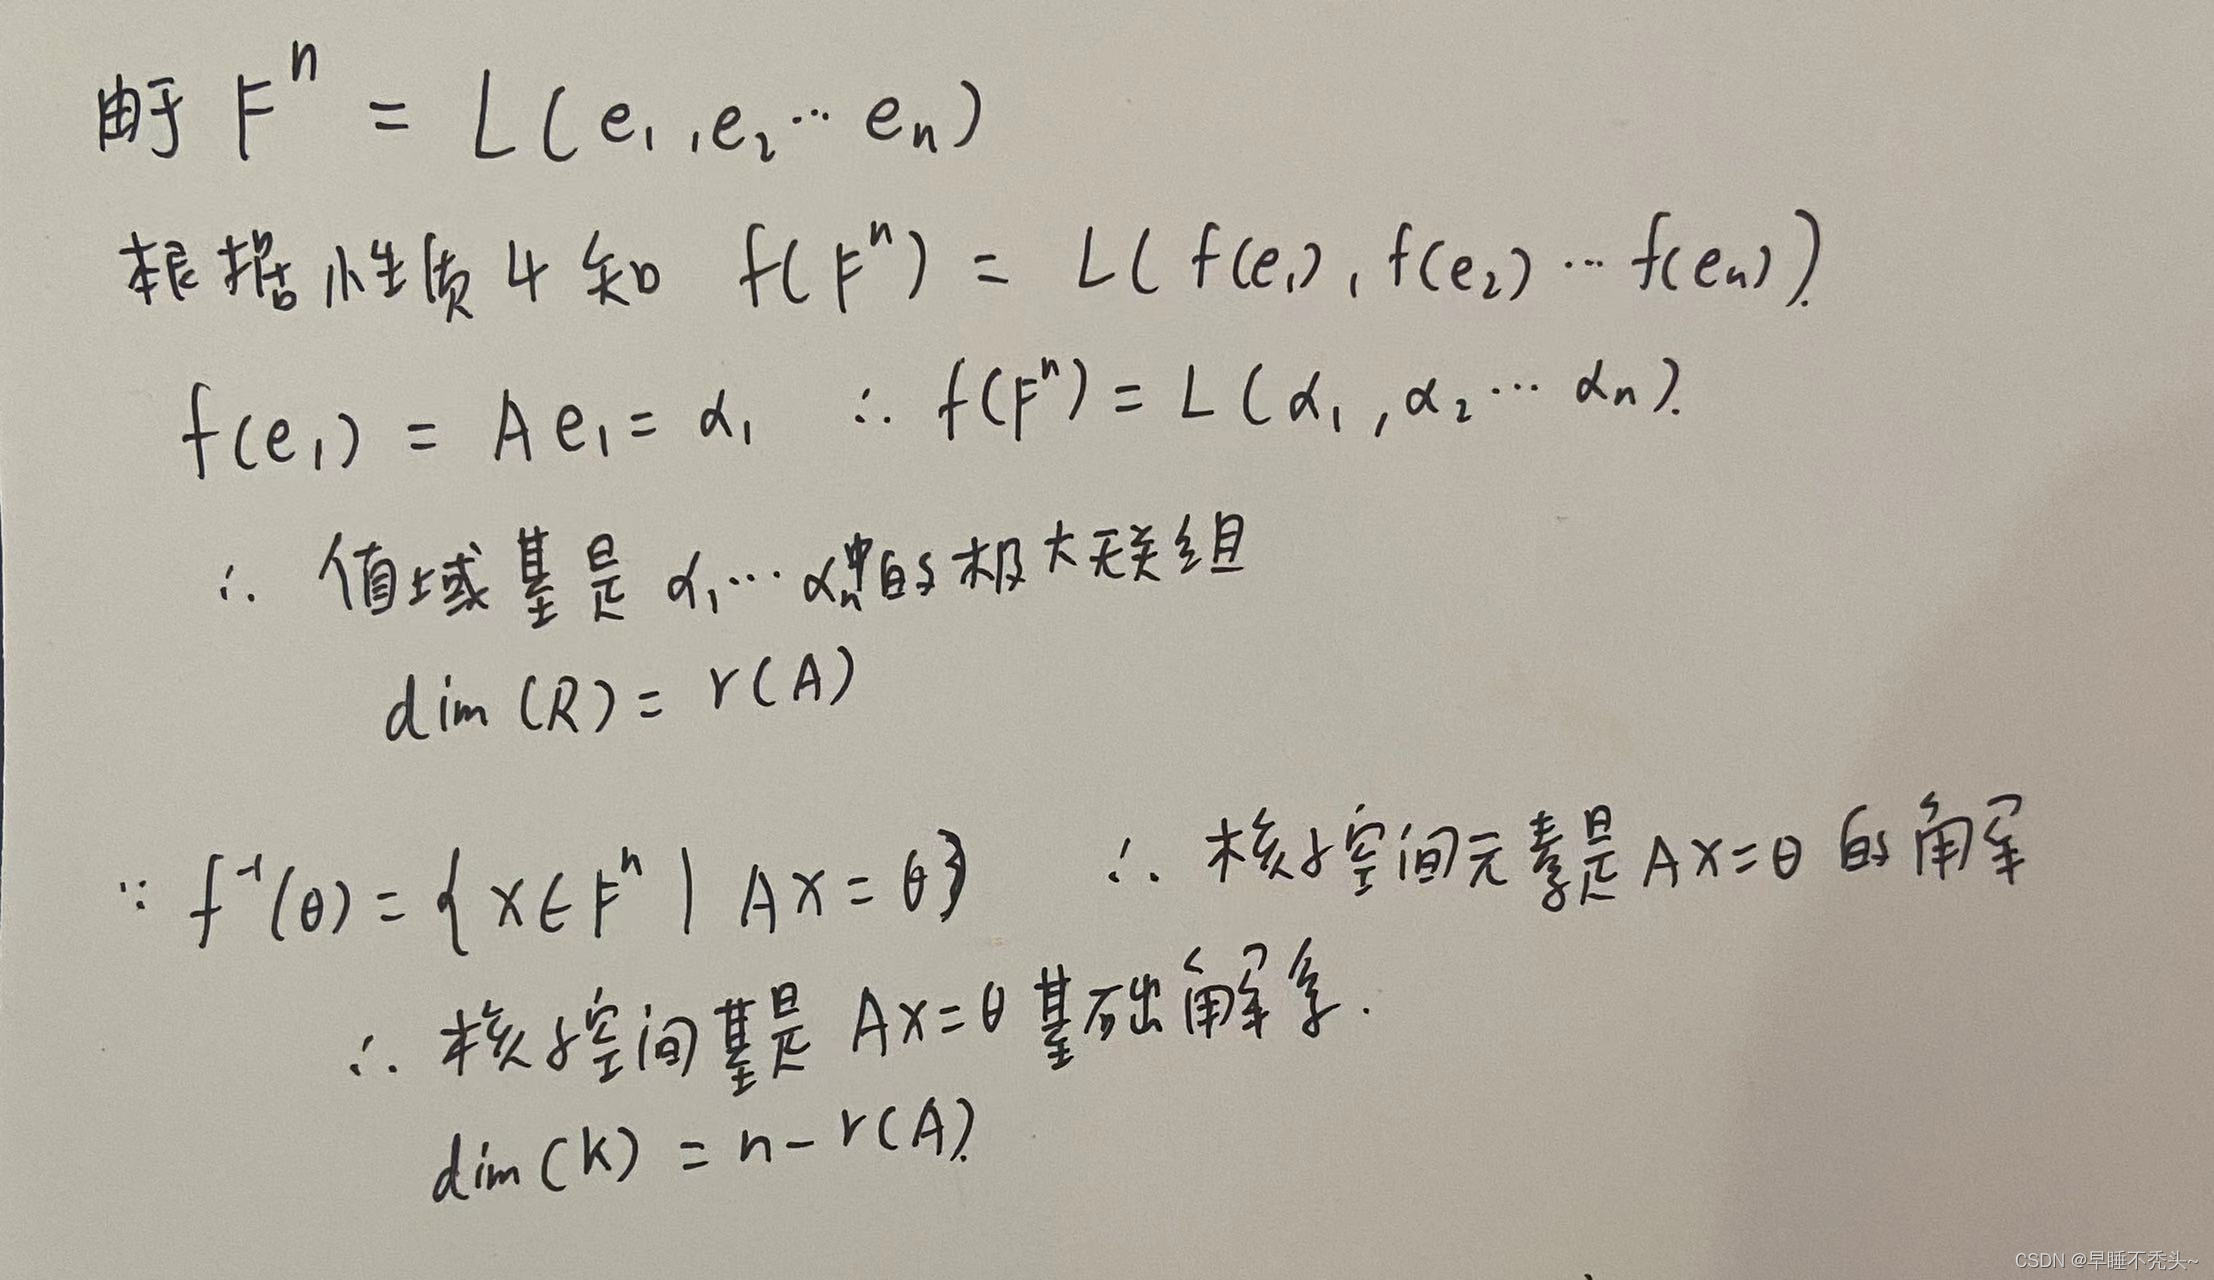 由于 Fⁿ = L(e₁,e₂⋯eₙ)
根据性质4知 f(Fⁿ) = L(f(e₁),f(e₂)⋯f(eₙ)).
f(e₁) = Ae₁ = α₁ ∴ f(Fⁿ) = L(α₁,α₂⋯αₙ).
∴ 值域基是 α₁⋯αₙ中的极大无关组
dim(R) = r(A)
∵ f⁻¹(θ) = {x∈Fⁿ | Ax=θ} ∴ 核子空间元素是 Ax=θ 的解
∴ 核子空间基是 Ax=θ 基础解系.
dim(K) = n-r(A).
CSDN @早睡不秃头~